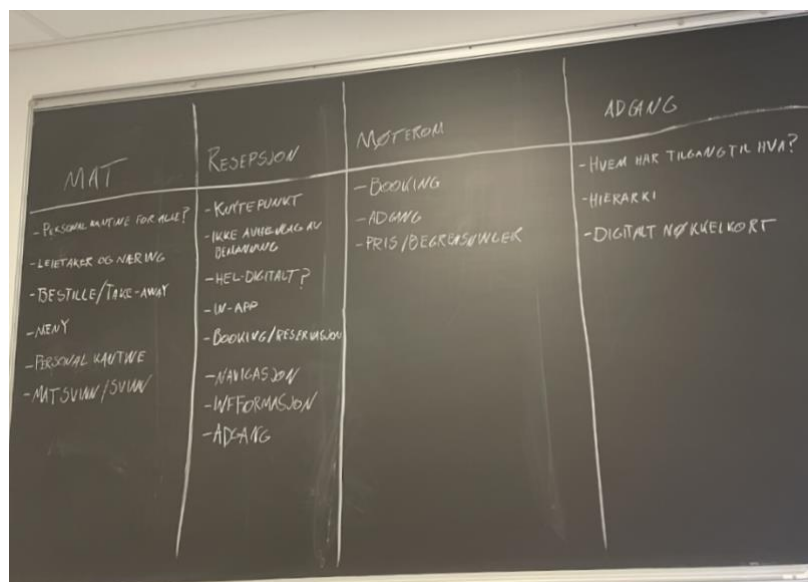 MAT
- PERSONAL KANTINE FOR ALLE?
- LEIETAKER OG NÆRING
- BESTILLE/TAKE-AWAY
- MENY
- PERSONAL KANTINE
- MATSVINN/SVINN
RESEPSJON
- KNUTEPUNKT
- IKKE AVHENGIG AV
BEMANNING
- HEL-DIGITALT?
- IN-APP
- BOOKING/RESERVASJON
- NAVIGASJON
- INFORMASJON
- ADGANG
MØTEROM
- BOOKING
- ADGANG
- PRIS/BEGRENSNINGER
ADGANG
- HVEM HAR TILGANG TIL HVA?
- HIERARKI
- DIGITALT NØKKELKORT